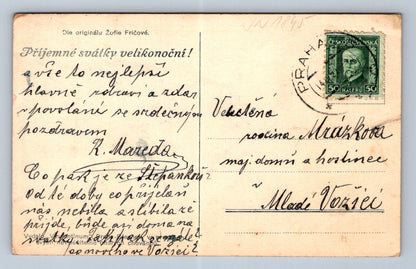 Dle originálu Žofie Fričové.
Příjemné svátky velikonoční!
a vše to nejlepší
hlavně zdraví a zdar
v povolání se srdečným
pozdravem
K. Mareda
Co pak je ze Štěpánkou?
Od té doby co přijela od
nás nebyla a slíbila že
přijde, bude asi doma na
svátky
Vožici?
PRAHA
ČESKOSLOVENSKO
50 HALÉŘŮ 50
Velectěná
rodina Mrázkova
maj. domu a hostince
Mladé Vožici